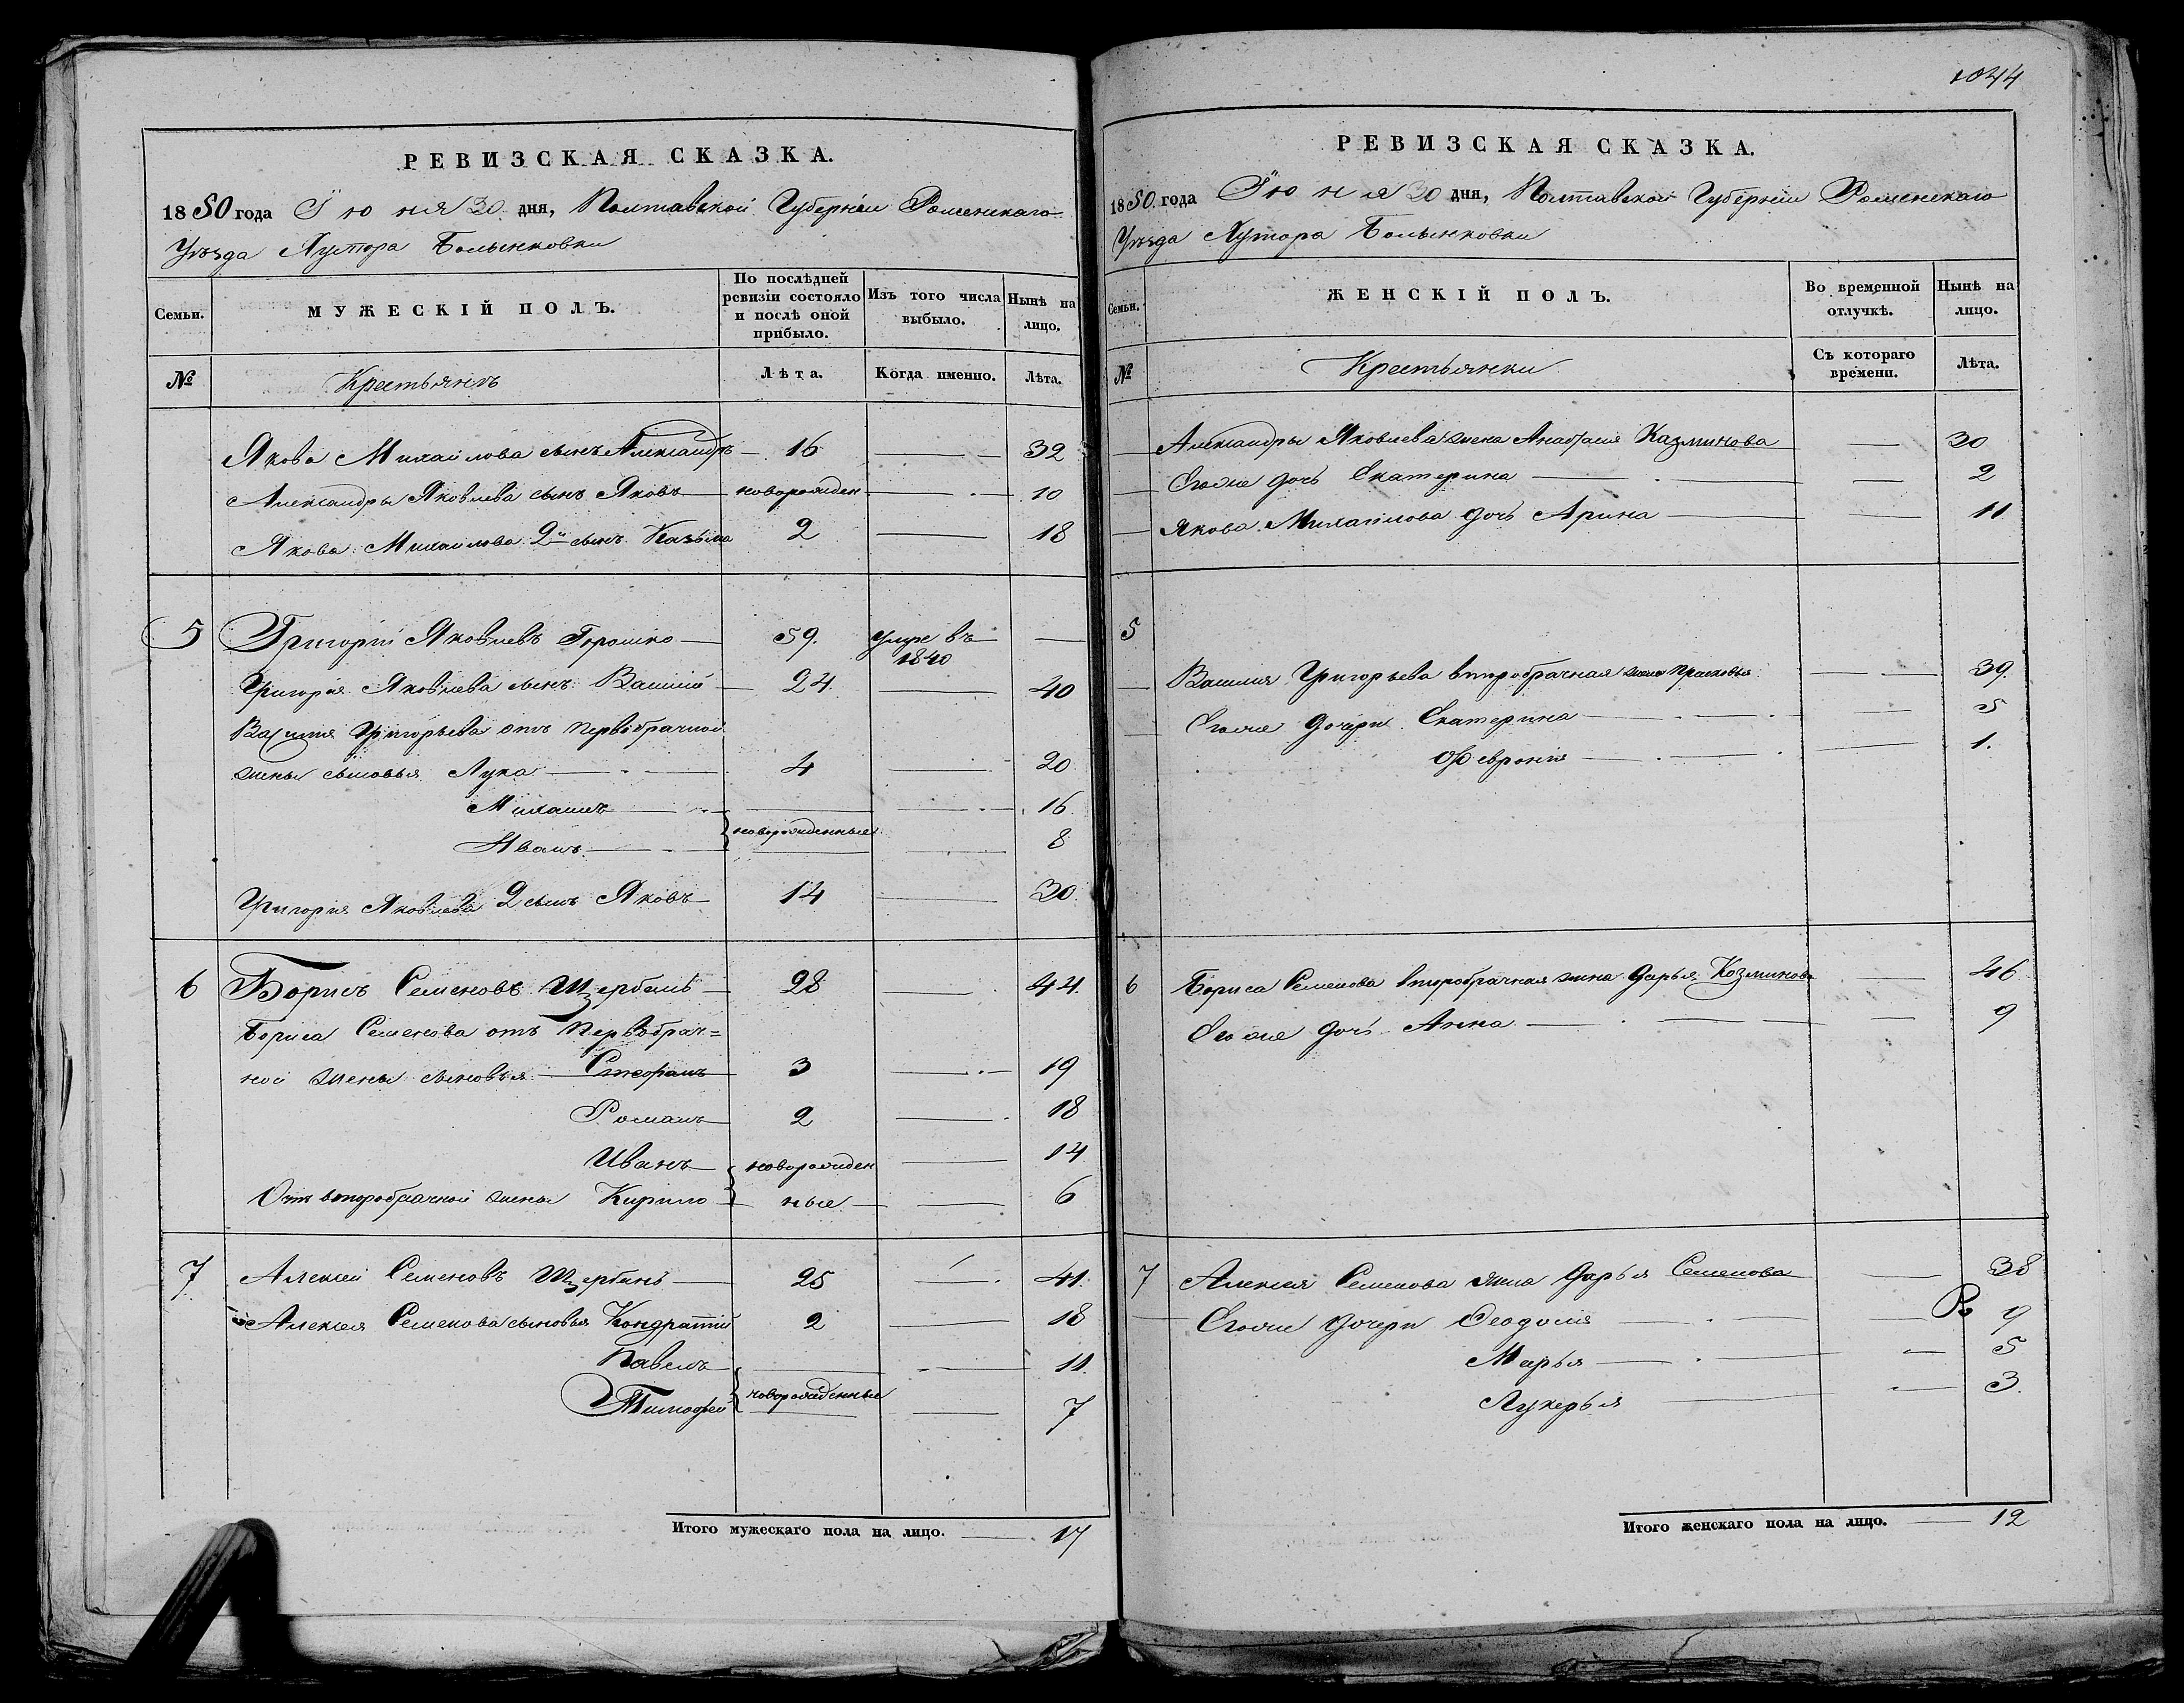 РЕВИЗСКАЯ СКАЗКА.
1850 года Іюня 30 дня, Полтавской Губерніи Роменскаго
Уѣзда Хутора
Семьи.
МУЖЕСКІЙ ПОЛЪ.
По послѣдней ревизіи состояло и послѣ оной прибыло.
Изъ того числа выбыло.
Нынѣ на лицо.
№
Крестьянъ
Лѣта.
Когда именно.
Лѣта.
Якова Михайлова сынъ Александръ 16 32
Александры Яковлева сынъ Яковъ новорожден 10
Якова Михайлова 2й сынъ Казьма 2 18
5 Григорій Яковлевъ Горошко 59. умре въ 1840
Григорія Яковлева сынъ Василій 24 40
Василія Григорьева отъ первобрачной
жены сыновья Лука 4 20
Михаилъ 16
новорожденные
Иванъ 8
Григорія Яковлева 2 сынъ Яковъ 14 30
6 Борисъ Семеновъ 28 44.
Бориса Семенова отъ первобрач=
ной жены сыновья Стефанъ 3 19
Романъ 2 18
Иванъ новорожден 14
Отъ второбрачной жены Кирило ные 6
7 Алексей Семеновъ 25 41.
Алексея Семенова сыновья Кондратій 2 18
Павелъ 11.
новорожденные
Тимофей 7
Итого мужескаго пола на лицо. 17
1044
РЕВИЗСКАЯ СКАЗКА.
1850 года Іюня 30 дня, Полтавской Губерніи Роменскаго
Уѣзда Хутора
Семьи.
ЖЕНСКІЙ ПОЛЪ.
Во временной отлучкѣ.
Нынѣ на лицо.
№
Крестьянки
Съ котораго времени.
Лѣта.
Александры Яковлева жена Анастасія Казминова 30
Егоже дочь Екатерина 2
Якова Михайлова дочь Арина 11
5
Василия Григорьева второбрачная жена Прасковья 39.
Егоже дочери Екатерина 5
Февронія 1.
6 Бориса Семенова второбрачная жена Дарья Козминова 46
Егоже дочь Анна 9
7 Алексея Семенова жена Дарья Семенова 38
Егоже дочери Феодосія 9
Марья 5
Лукерья 3.
Итого женскаго пола на лицо. 12